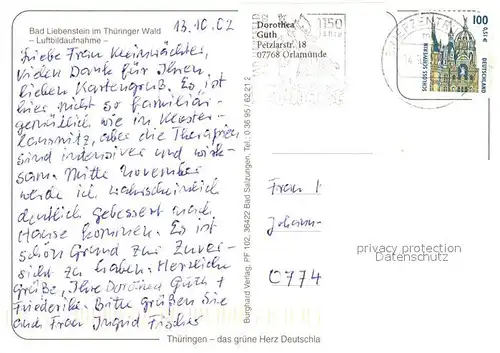 Bad Liebenstein im Thüringer Wald
– Luftbildaufnahme –
13.10.02
Liebe Frau Kleinwächter,
vielen Dank für Ihren
lieben Kartengruß. Es ist
hier nicht so familiär-
gemütlich wie in Kloster-
lausnitz, aber die Therapien
sind intensiver und wirk-
sam. Mitte November
werde ich wahrscheinlich
deutlich gebessert nach
Hause kommen. Es ist
schön Grund zur Zuver-
sicht zu haben. Herzliche
Grüße, Ihre Dorothea Güth +
Friederike. Bitte grüßen Sie
auch Frau Ingrid Fischer
Thüringen – das grüne Herz Deutschla
Burghard Verlag, PF 102, 36422 Bad Salzungen, Tel.: 0 36 95 / 62 21 2
Dorothea
Güth
Petzlarstr. 18
07768 Orlamünde
1150
Jahre
BRIEFZENTR
100
0,51 €
SCHLOSS SCHWERIN
DEUTSCHLAND
Frau
Johann
0774
privacy protection
Datenschutz